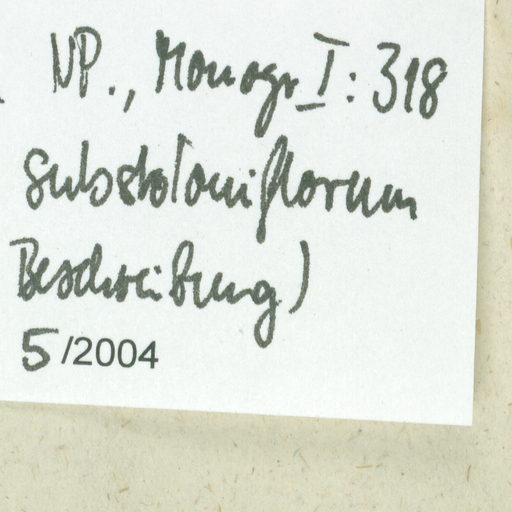 NP., Monogr. I: 318
substoloniflorum
Beschreibung)
5/2004